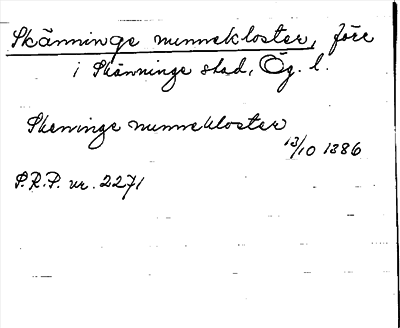 Skänninge nunnekloster, före
i Skänninge stad, Ög. l.
Skeninge nunnekloster
13/10 1386
S.R.P. nr. 2271